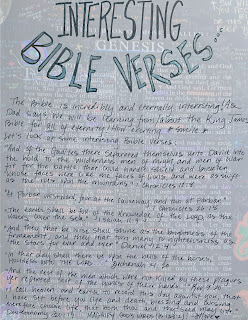 INTERESTING
BIBLE VERSES...
GENESIS
The Bible is incredibly and eternally interesting! As
Dad says we will be learning from/about the King James
Bible for all of eternity! How exciting
Let's look at some interesting Bible verses:
"And of the Gadites there separated themselves unto David into
the hold to the wilderness men of might, and men of war
fit for the battle, that could handle shield and buckler,
whose faces were like the faces of lions, and were as swift
as the roes upon the mountains" 1 Chronicles 12:8
"At Parbar westward, four at the causeway, and two at Parbar."
1 Chronicles 26:18
the earth shall be full of the knowledge of the LORD, as the
waters cover the sea.
"And they that be wise shall shine as the brightness of the
firmament; and they that turn many to righteousness as
the stars for ever and ever" Daniel 12:3
In that day shall there be upon the bells of the horses,
HOLINESS UNTO THE LORD. Zechariah 14:20
And the rest of the men which were not killed by these plagues
yet repented not of the works of their hands
"I call heaven and earth to record this day against you, that
I have set before you life and death, blessing and cursing:
therefore choose life, that both thou and thy seed may live:"
Deuteronomy 30:19